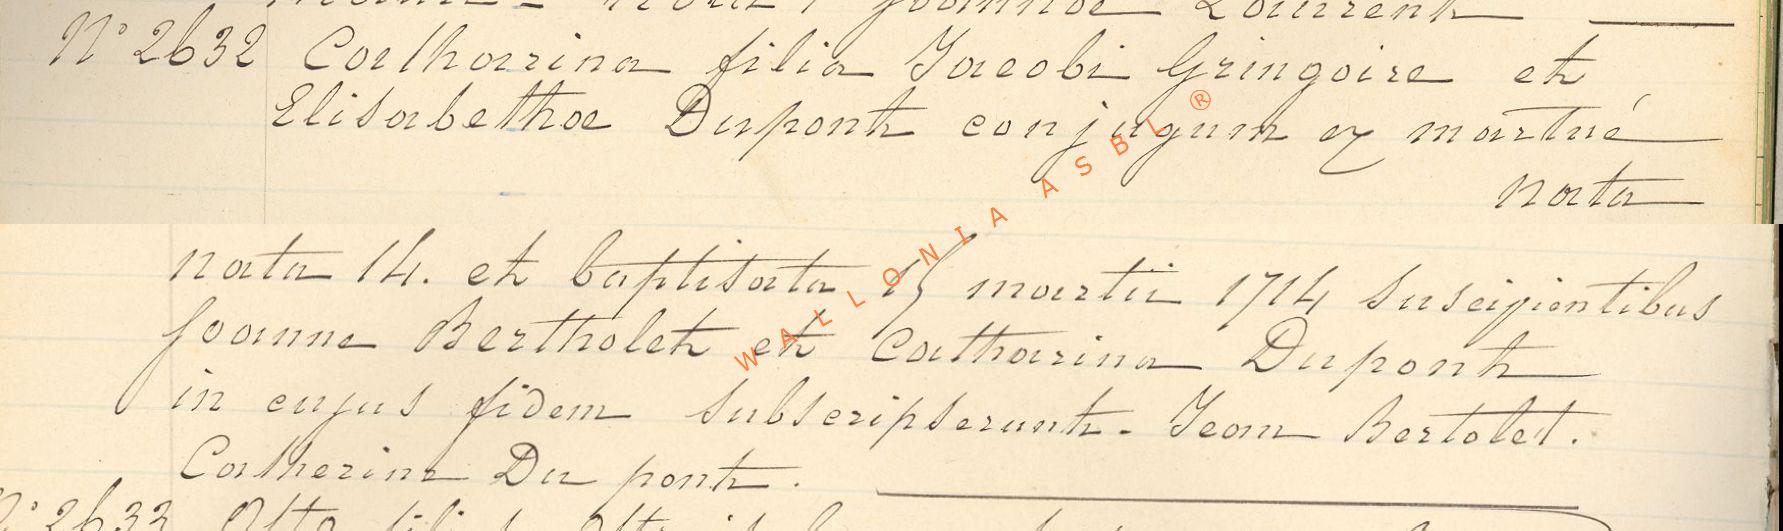 Joannae Laurent
N° 2632 Catharina filia Jacobi Gringoire et
Elisabethae Dupont conjugum ex martué
nata
nata 14. et baptisata 15 martii 1714 suscipientibus
Joanne Bertholet et Catharina Dupont
in cujus fidem subscripserunt. Jean Bertolet.
Catherine Du pont.
N° 2633 Otto
WALLONIA ASBL ®